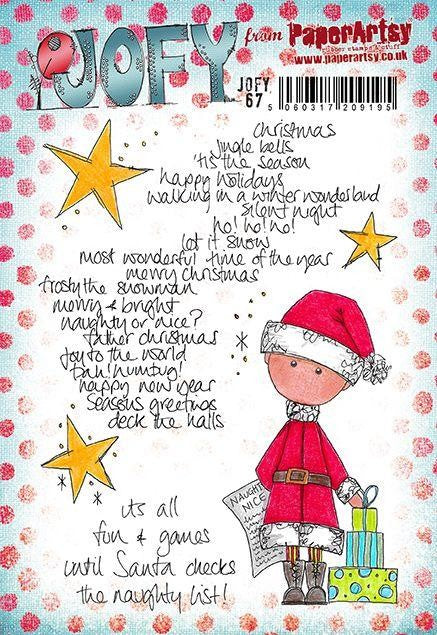 JOFY from PaperArtsy
rubber stamps & stuff
www.paperartsy.co.uk
JOFY
67
5 060317 209195
christmas
jingle bells
'tis the season
happy holidays
walking in a winter wonderland
silent night
ho! ho! ho!
let it snow
most wonderful time of the year
merry christmas
frosty the snowman
merry & bright
naughty or nice?
father christmas
joy to the world
bah! humbug!
happy new year
seasons greetings
deck the halls
NAUGHTY
NICE
its all
fun & games
until Santa checks
the naughty list!